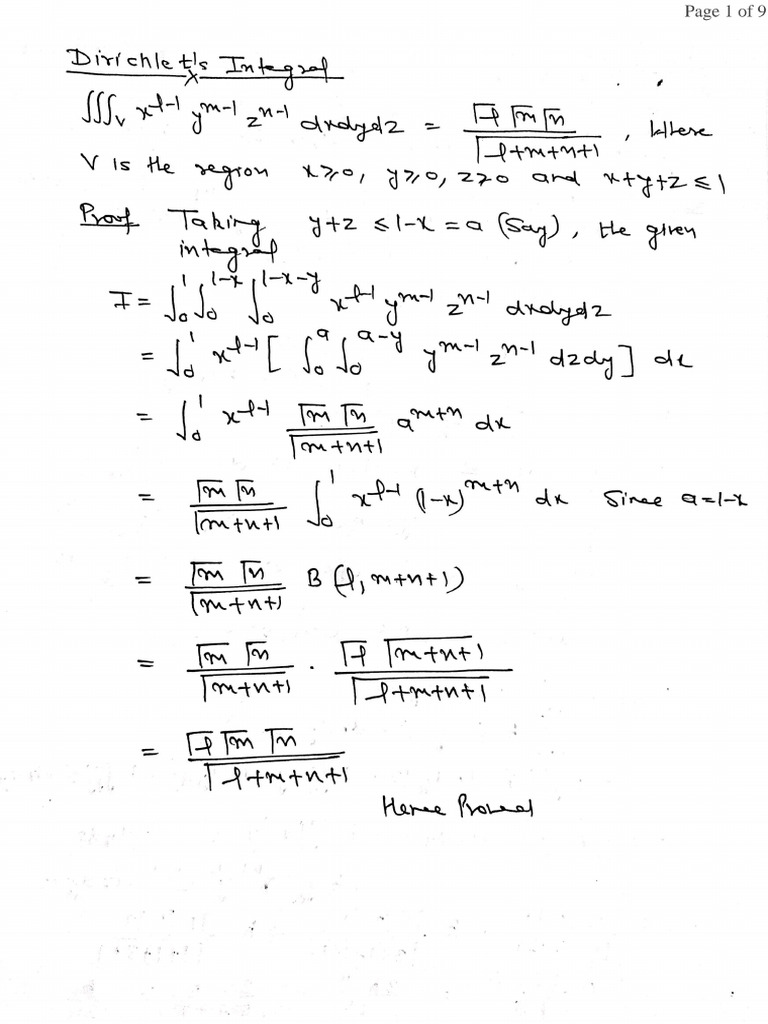 Page 1 of 9
Dirichlet's Integral
∭_V x^{l-1} y^{m-1} z^{n-1} dxdydz = \frac{Γl Γm Γn}{Γl+m+n+1}, where
V is the region x⩾0, y⩾0, z⩾0 and x+y+z ⩽ 1
Proof Taking y+z ⩽ 1-x = a (Say), the given
integral
I = ∫_0^1 ∫_0^{1-x} ∫_0^{1-x-y} x^{l-1} y^{m-1} z^{n-1} dxdydz
= ∫_0^1 x^{l-1} [ ∫_0^a ∫_0^{a-y} y^{m-1} z^{n-1} dzdy ] dx
= ∫_0^1 x^{l-1} \frac{Γm Γn}{Γm+n+1} a^{m+n} dx
= \frac{Γm Γn}{Γm+n+1} ∫_0^1 x^{l-1} (1-x)^{m+n} dx Since a=1-x
= \frac{Γm Γn}{Γm+n+1} B (l, m+n+1)
= \frac{Γm Γn}{Γm+n+1} · \frac{Γl Γm+n+1}{Γl+m+n+1}
= \frac{Γl Γm Γn}{Γl+m+n+1}
Hence Proved